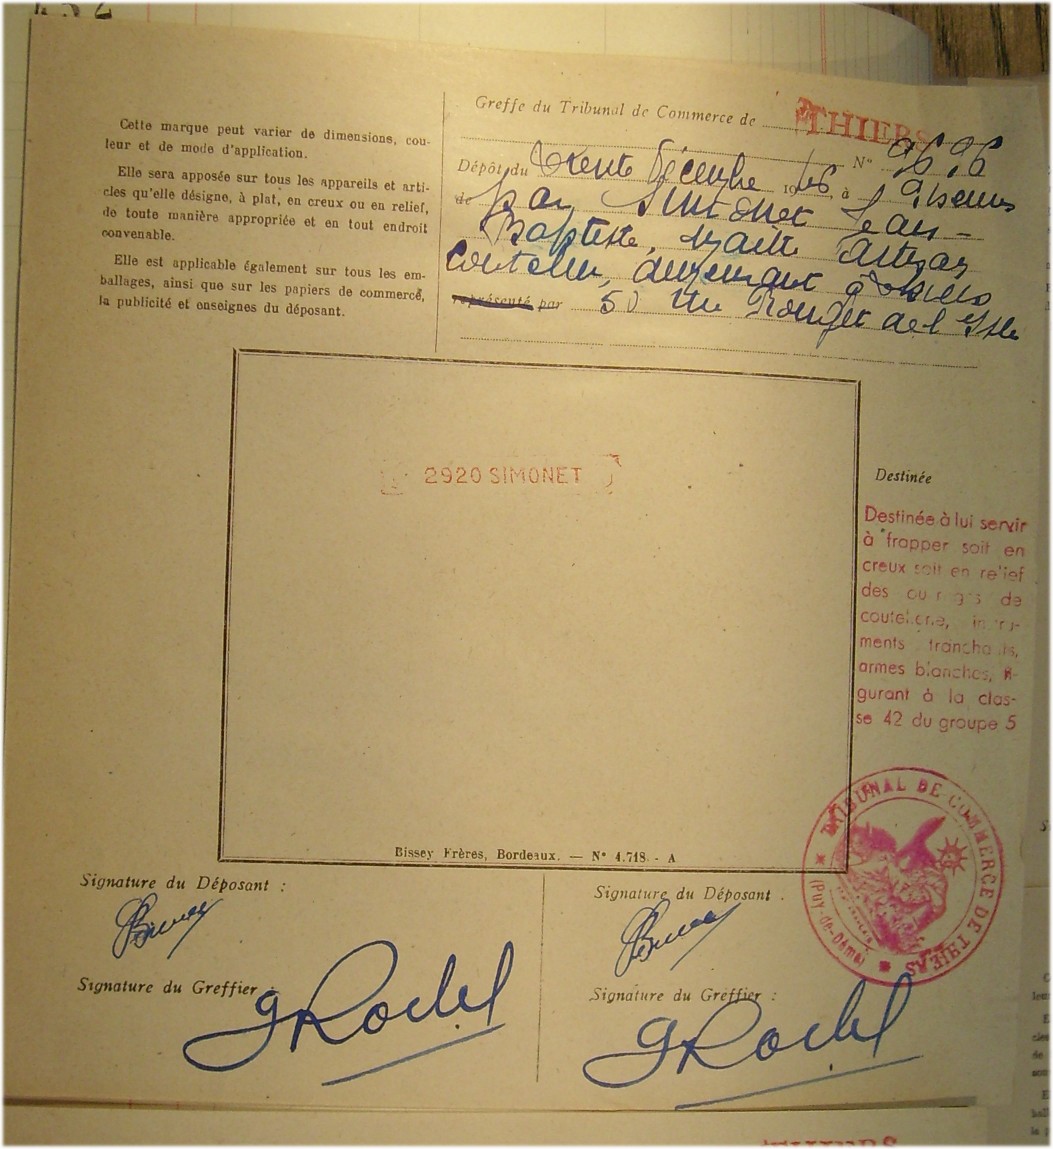 Cette marque peut varier de dimensions, cou-
leur et de mode d'application.
Elle sera apposée sur tous les appareils et arti-
cles qu'elle désigne, à plat, en creux ou en relief,
de toute manière appropriée et en tout endroit
convenable.
Elle est applicable également sur tous les em-
ballages, ainsi que sur les papiers de commerce,
la publicité et enseignes du déposant.
Greffe du Tribunal de Commerce de THIERS
N° 9696
Dépôt du trente Décembre 1946, à 9 heures
de par Simonet Jean-
Baptiste, Maître Artisan
Coutelier, demeurant à
représenté par 50 rue Rouget de l'Isle
2920 SIMONET
Destinée
Destinée à lui servir
à frapper soit en
creux soit en relief
des ouvrages de
coutellerie, instru-
ments tranchants,
armes blanches, fi-
gurant à la clas-
se 42 du groupe 5
Bissey Frères, Bordeaux. — N° 4.718 - A
TRIBUNAL DE COMMERCE DE THIERS
(PUY-de-Dôme)
Signature du Déposant :
Signature du Greffier :
Signature du Déposant :
Signature du Greffier :
THIERS